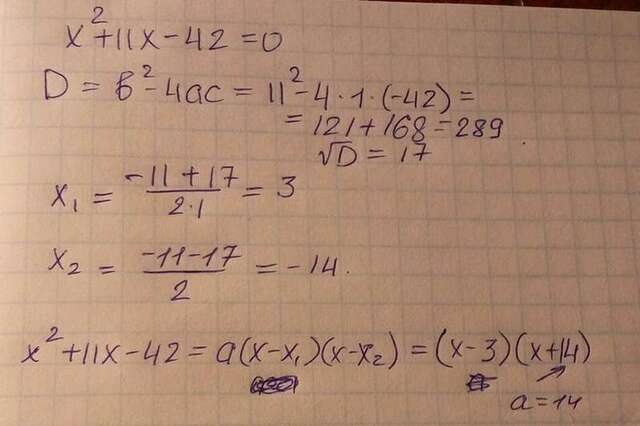 x²+11x-42=0
D = b²-4ac = 11²-4·1·(-42)=
= 121+168=289
√D = 17
x₁ = (-11+17)/(2·1) = 3
x₂ = (-11-17)/2 = -14.
x²+11x-42 = a(x-x₁)(x-x₂) = (x-3)(x+14)
a=14